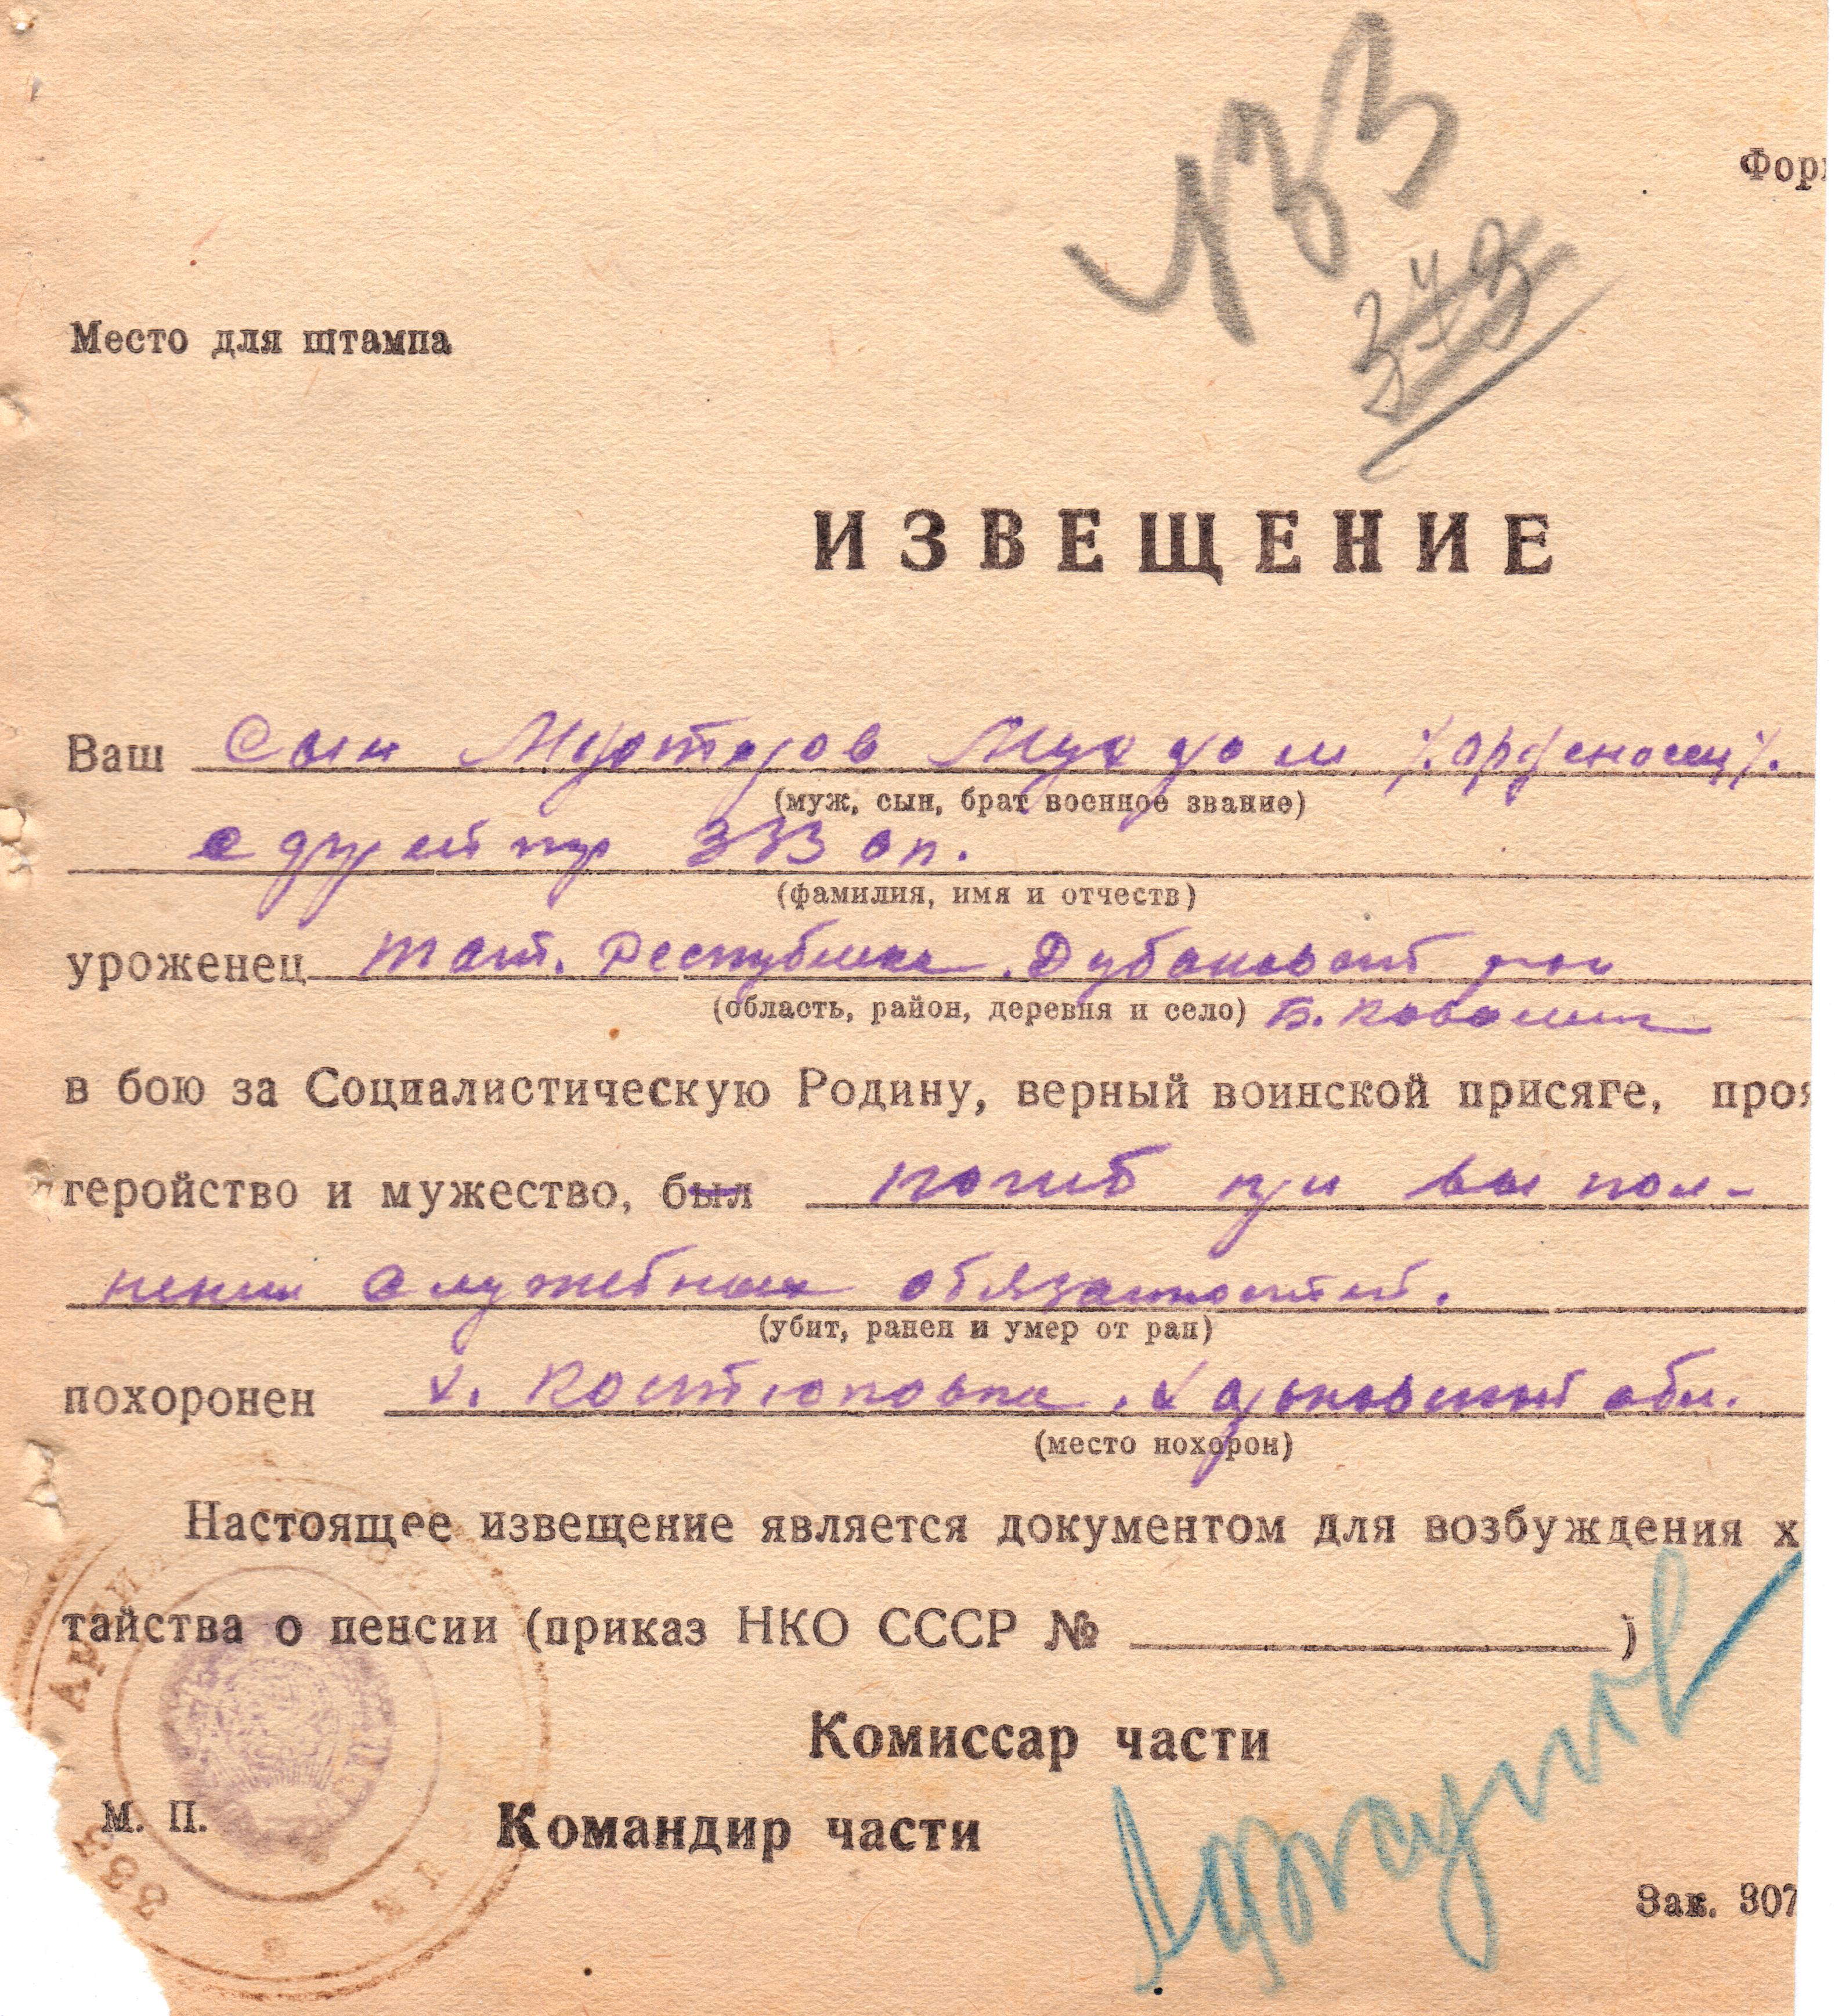 433
Фор
373
Место для штампа
ИЗВЕЩЕНИЕ
Ваш сын Муртазов Мухдом /орденосец/.
(муж, сын, брат военное звание)
333 оп.
(фамилия, имя и отчеств)
уроженец Тат. Республика. Дубановский
(область, район, деревня и село) Б. Ковали
в бою за Социалистическую Родину, верный воинской присяге, проя
геройство и мужество, был погиб при выпол-
нении служебных обязанностей.
(убит, ранен и умер от ран)
похоронен х. Костюповка, Харьковской обл.
(место нохорон)
Настоящее извещение является документом для возбуждения х
тайства о пенсии (приказ НКО СССР № )
Комиссар части
М. П. Командир части
333
Зак. 307